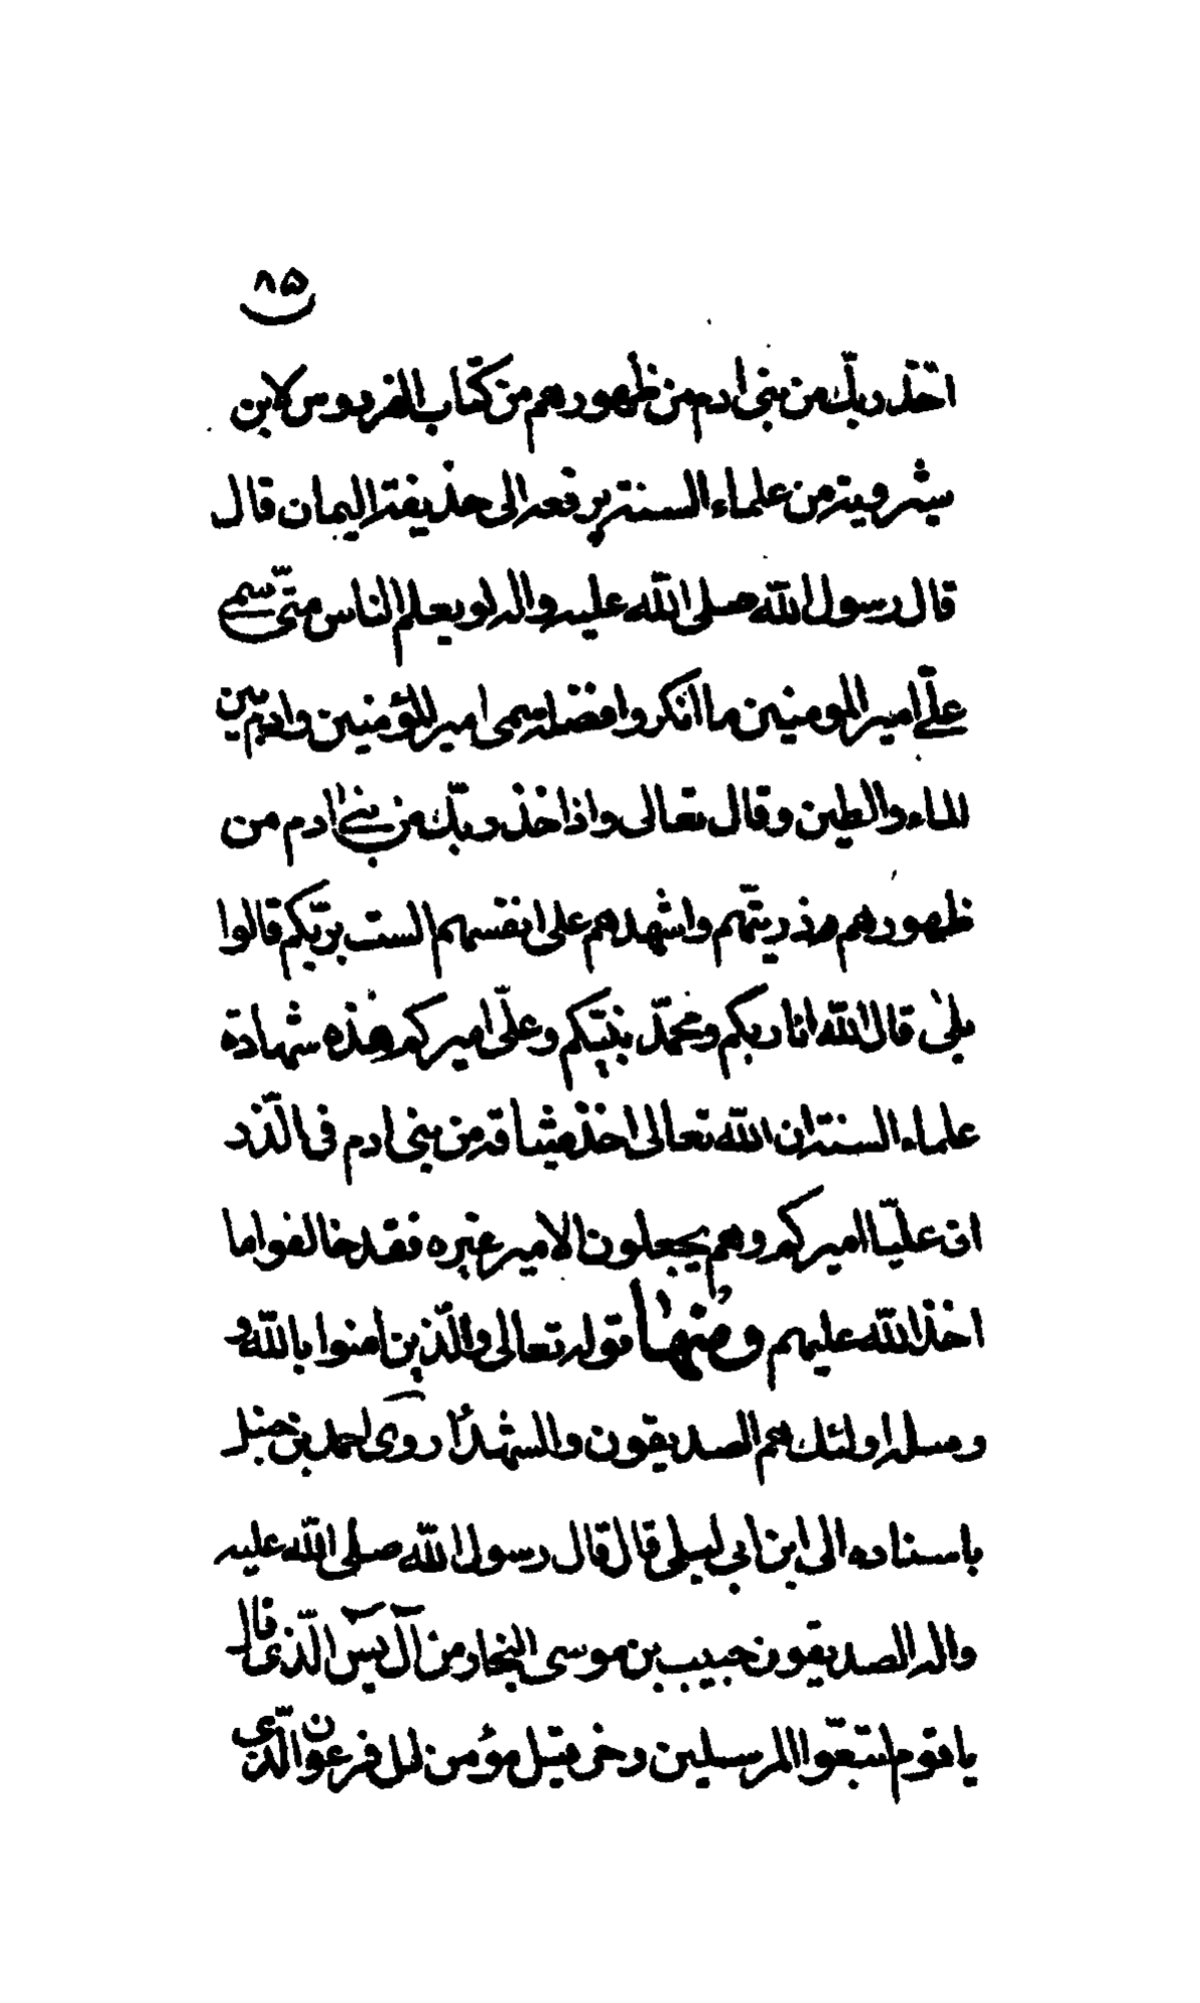 ٨٥
اخذ ربّك من بنى ادم من ظهورهم من كتاب الفردوس لابن
شيرويه من علماء السنة يرفعه الى حذيفة اليمان قال
قال رسول الله صلى الله عليه واله لو يعلم الناس متى سمّى
علىّ امير المومنين ما انكروا فضله سمى امير المؤمنين وادم بين
الماء والطين وقال تعالى واذا خذ ربّك من بنى ادم من
ظهورهم من ذريتهم واشهدهم على انفسهم الست بربّكم قالوا
بلى قال الله انا ربكم ومحمّد نبيّكم وعلىّ اميركم هذه شهادة
علماء السنة ان الله تعالى اخذ ميثاقه من بنى ادم فى الذّر
ان عليّا اميركم وهم يجعلون الامير غيره فقد خالفوا ما
اخذ الله عليهم ومنها قوله تعالى والّذين امنوا بالله و
رسله اولئك هم الصديقون والشهداء روى احمد بن حنبل
باسناده الى ابن ابى ليلى قال قال رسول الله صلى الله عليه
واله الصديقون حبيب بن موسى النجار من آل يس الّذى قال
يا قوم اتبعوا المرسلين وخرقيل مؤمن ال فرعون الّذى